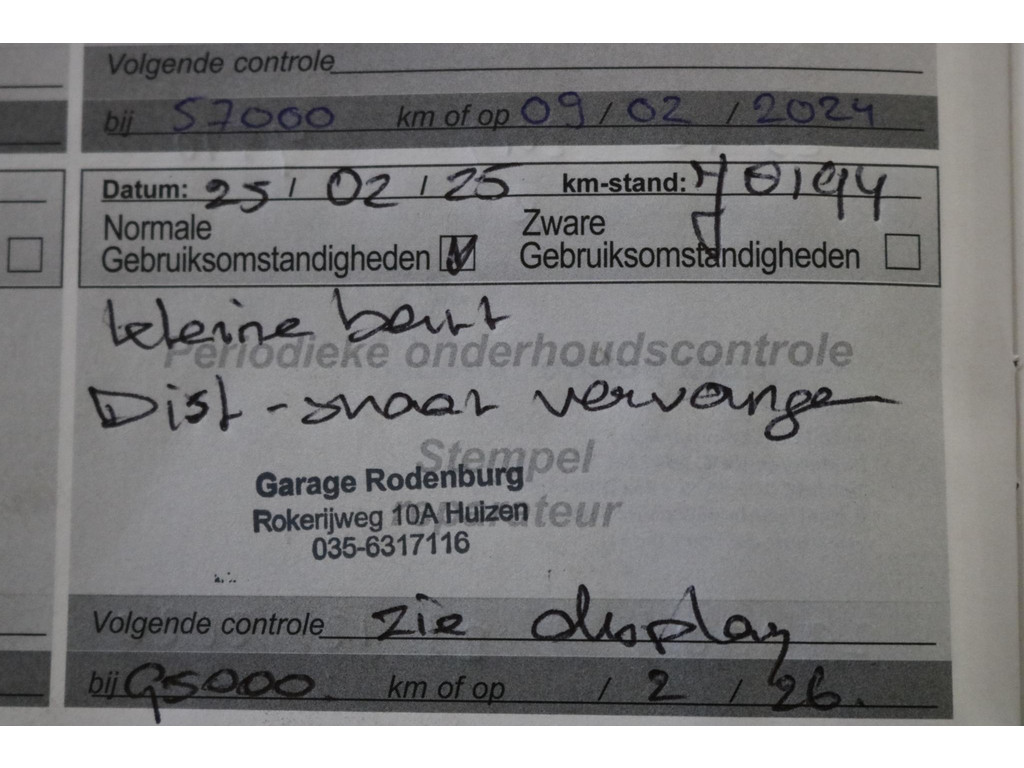 Volgende controle
bij 57000 km of op 09 / 02 / 2024
Datum: 25 / 02 / 25 km-stand: 70194
Normale Gebruiksomstandigheden
Zware Gebruiksomstandigheden
kleine beurt
Periodieke onderhoudscontrole
Dist - snaar vervangen
Stempel
Garage Rodenburg
Rokerijweg 10A Huizen
reparateur
035-6317116
Volgende controle zie display
bij 95000 km of op / 2 / 26.